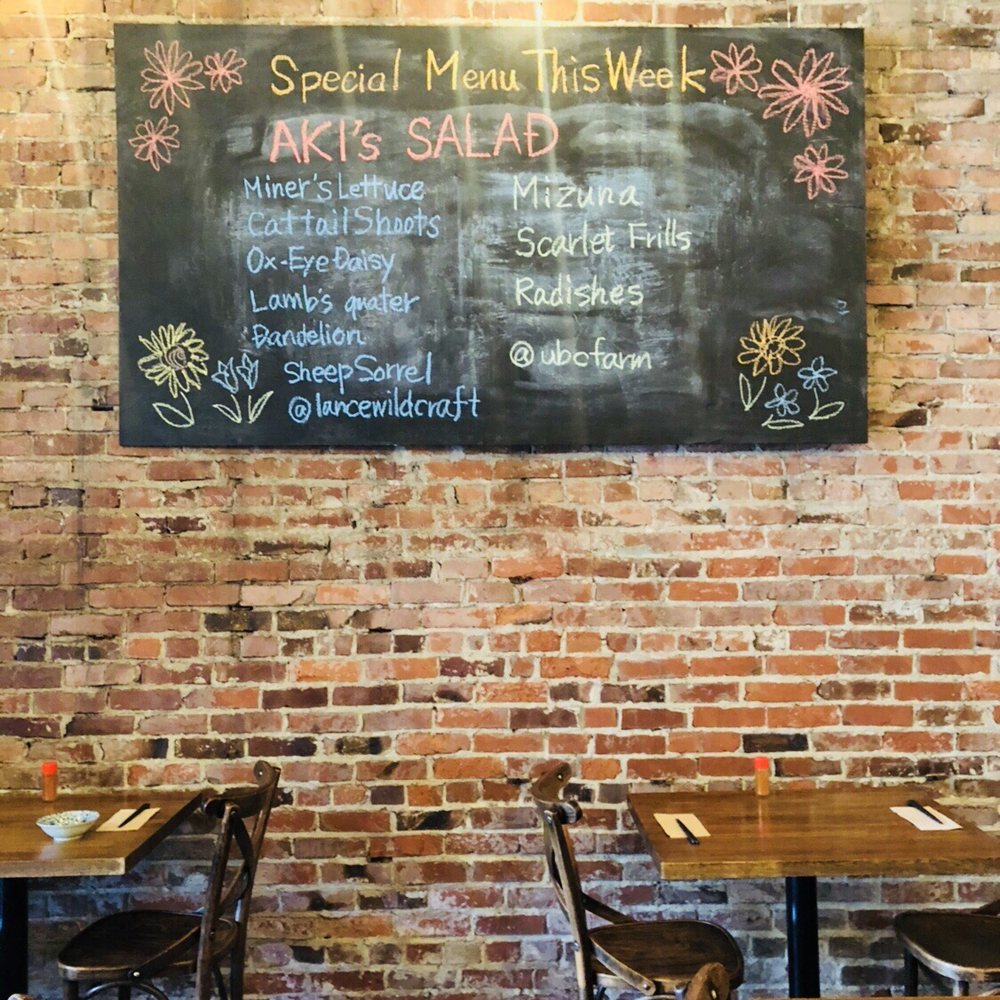 Special Menu This Week
AKI's SALAD
Miner's Lettuce
Cattail Shoots
Ox-Eye Daisy
Lamb's quater
Dandelion
Sheep Sorrel
@lancewildcraft
Mizuna
Scarlet Frills
Radishes
@ubcfarm